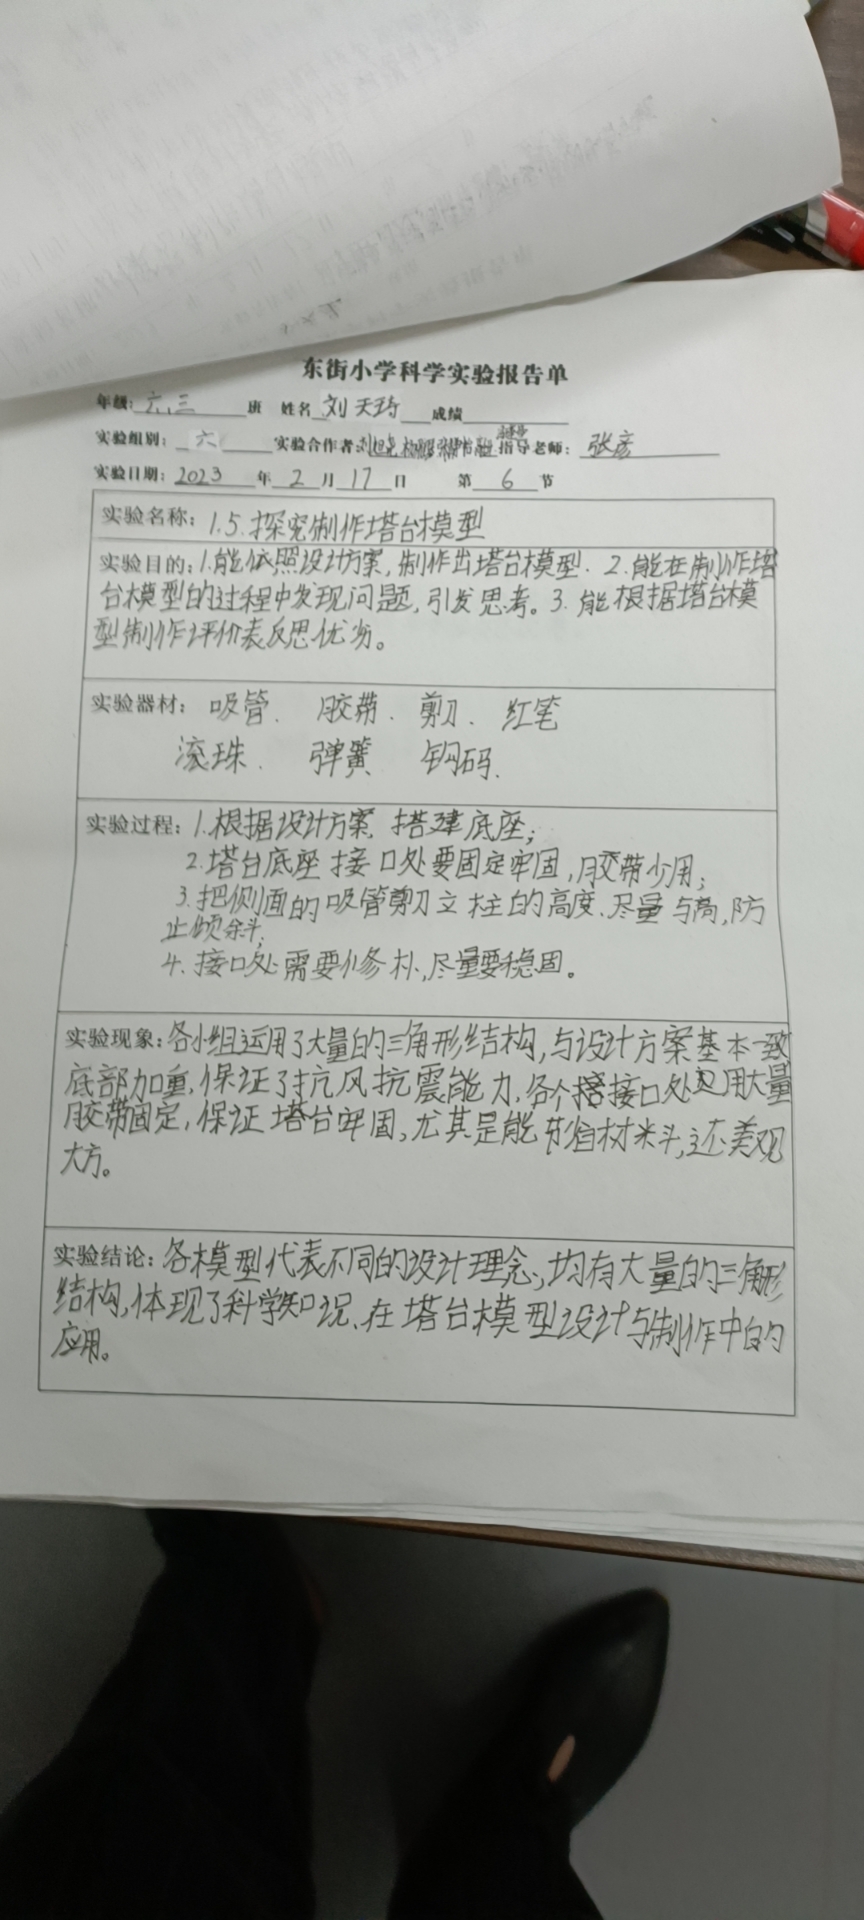 东街小学科学实验报告单
年级: 六.三 班 姓名 刘天琦 成绩
实验组别: 六 实验合作者: 指导老师: 张彦
实验日期: 2023 年 2 月 17 日 第 6 节
实验名称: 1.5.探究制作塔台模型
实验目的: 1.能依照设计方案, 制作出塔台模型. 2.能在制作塔
台模型的过程中发现问题, 引发思考。3.能根据塔台模
型制作评价表反思优劣。
实验器材: 吸管. 胶带. 剪刀. 红笔
滚珠. 弹簧 钩码.
实验过程: 1.根据设计方案, 搭建底座;
2.塔台底座接口处要固定牢固, 胶带少用;
3.把侧面的吸管剪刀立柱的高度、尽量与高, 防
止倾斜;
4.接口处需要修补, 尽量要稳固。
实验现象: 各小组运用了大量的三角形结构, 与设计方案基本一致
底部加重, 保证了抗风抗震能力, 各个搭接口处运用大量
胶带固定, 保证塔台牢固, 尤其是能节省材料, 还美观
大方。
实验结论: 各模型代表不同的设计理念, 均有大量的三角形
结构, 体现了科学知识、在塔台模型设计与制作中的
应用。